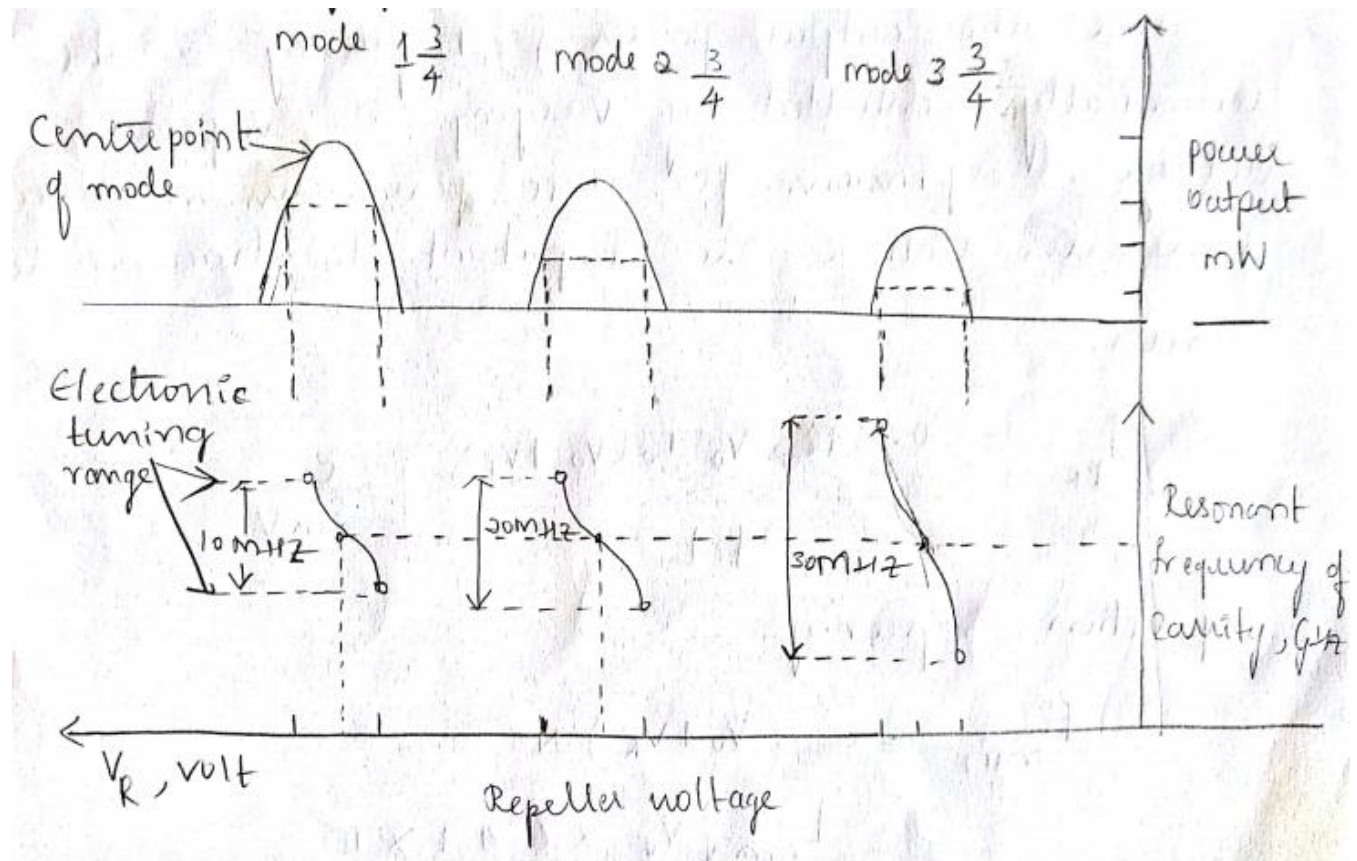 mode 1 3/4
mode 2 3/4
mode 3 3/4
Centre point
of mode
power
output
mW
Electronic
tuning
range
10 MHZ
20MHZ
30MHZ
Resonant
frequency of
Cavity, GHz
V_R, volt
Repeller voltage